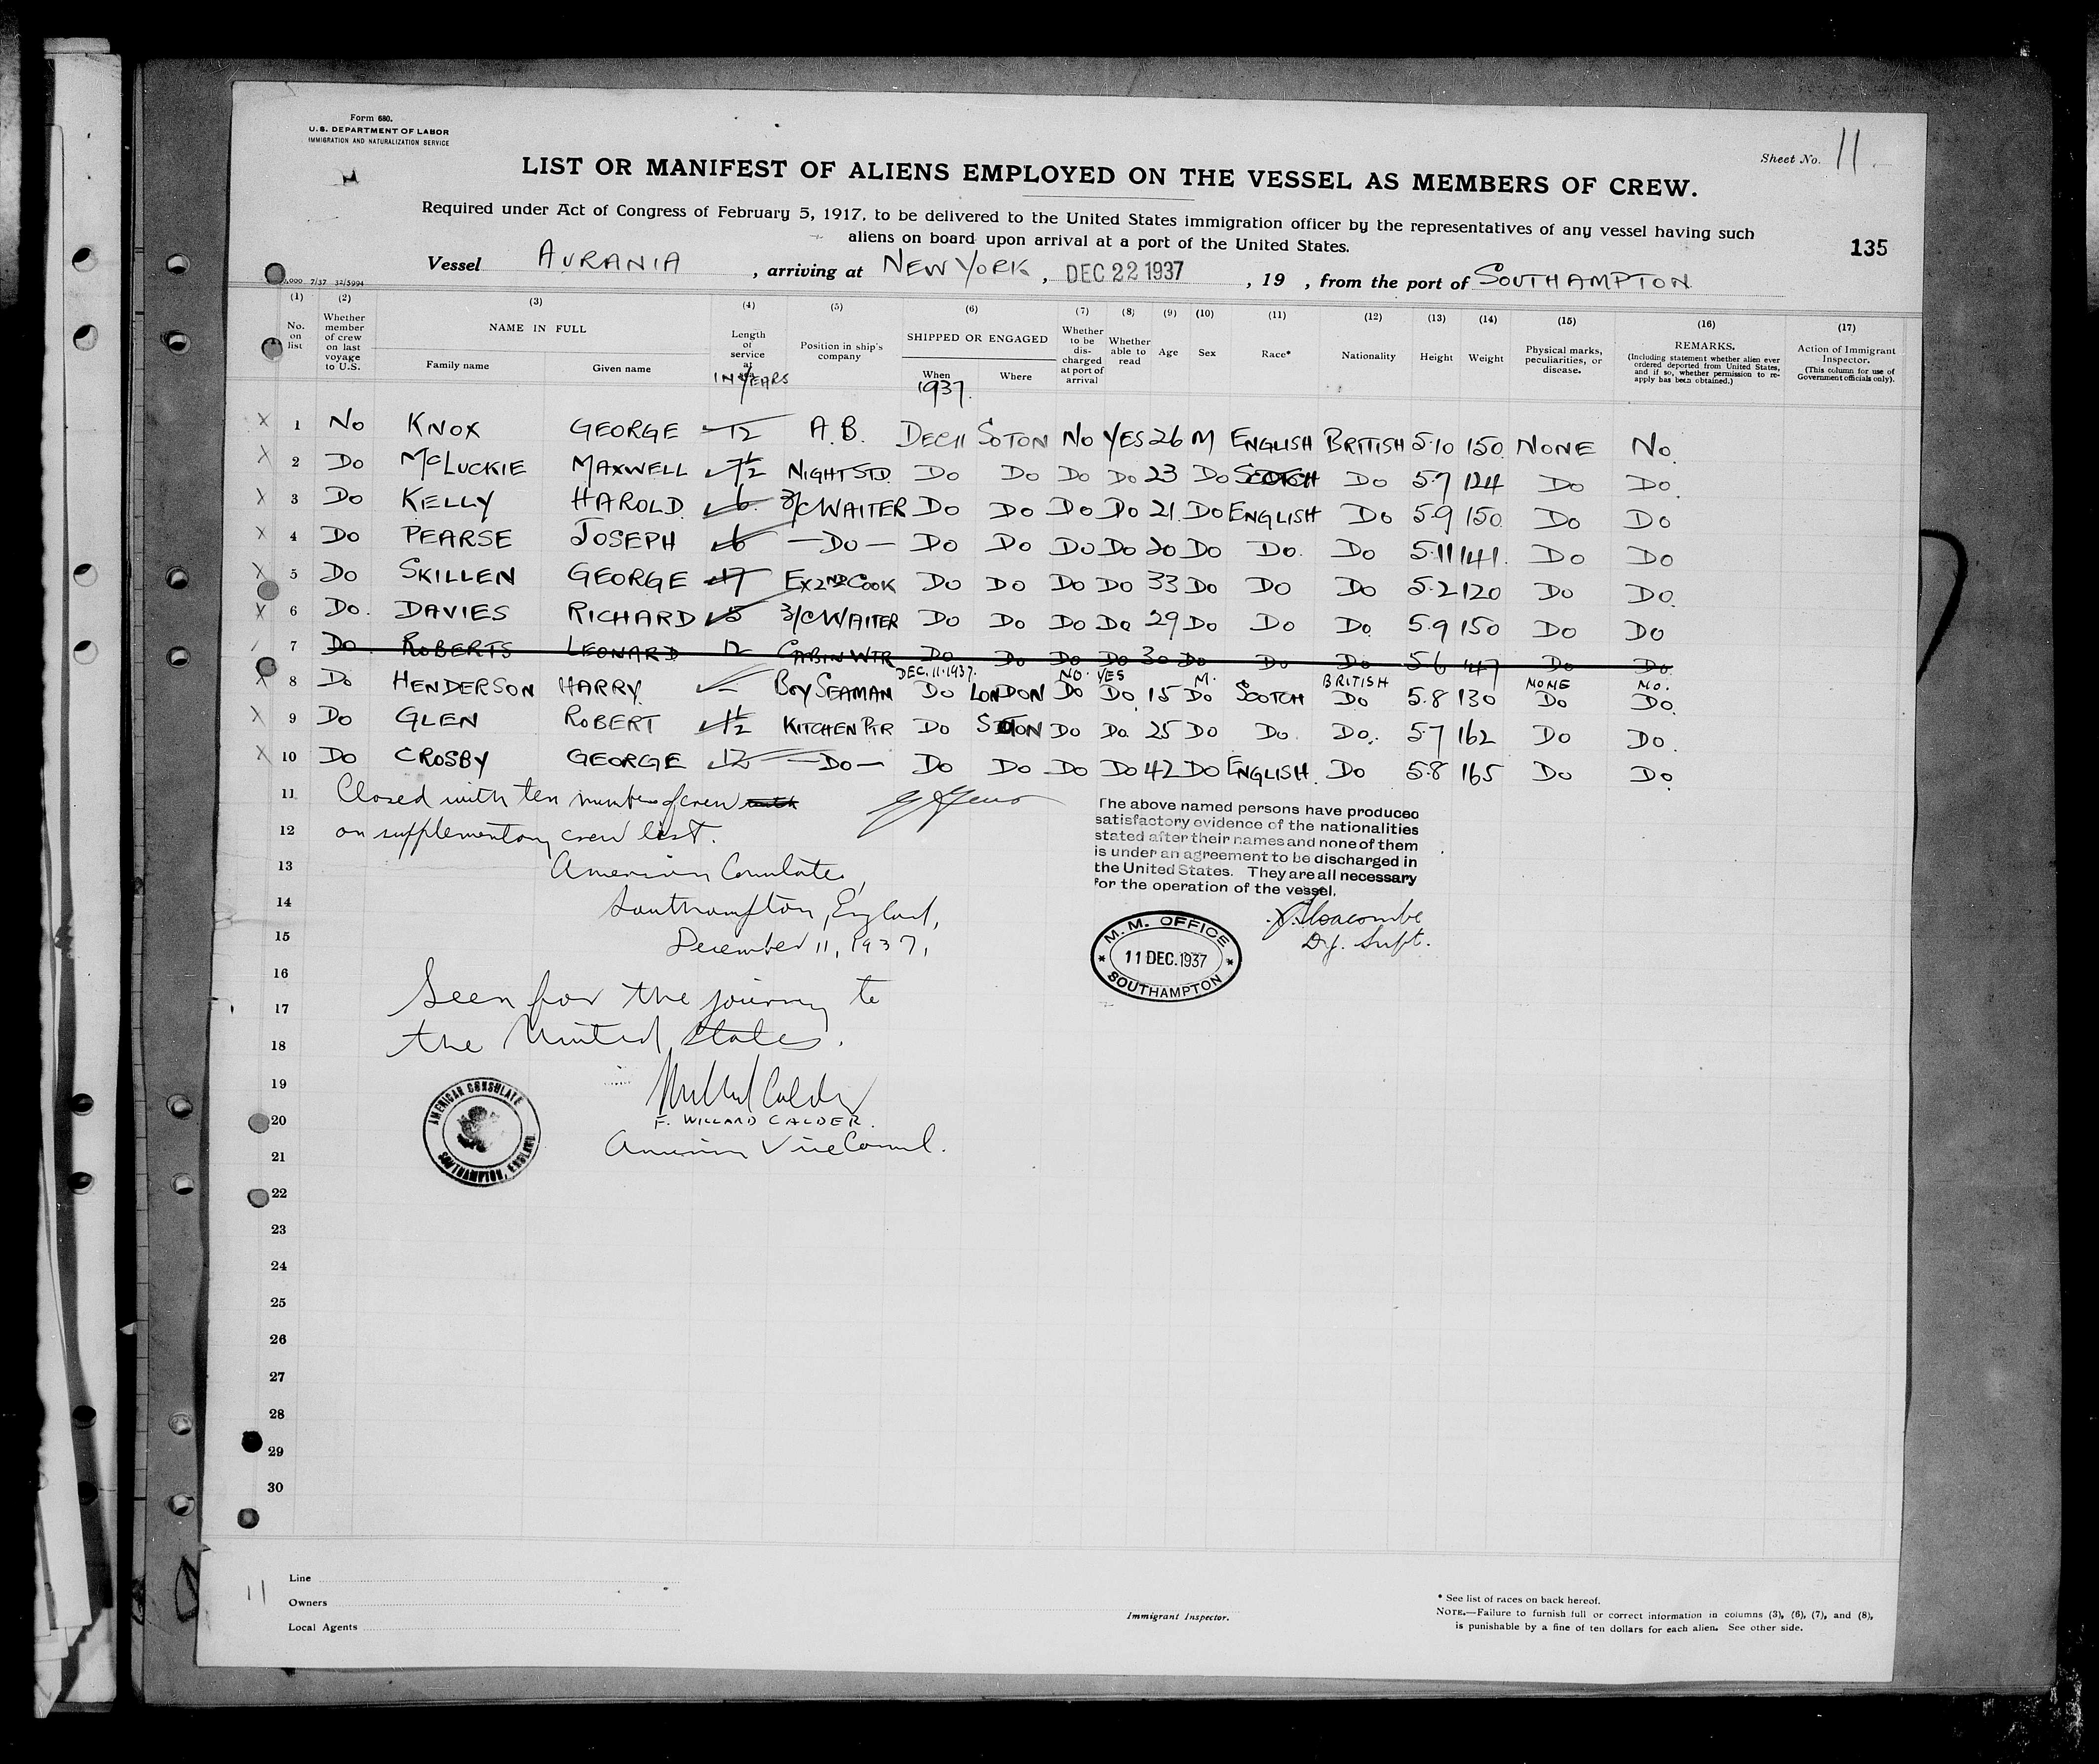 Form 680.
U.S. DEPARTMENT OF LABOR
IMMIGRATION AND NATURALIZATION SERVICE
Sheet No. 11.
LIST OR MANIFEST OF ALIENS EMPLOYED ON THE VESSEL AS MEMBERS OF CREW.
Required under Act of Congress of February 5, 1917, to be delivered to the United States immigration officer by the representatives of any vessel having such
aliens on board upon arrival at a port of the United States.
135
Vessel AURANIA, arriving at NEW YORK, DEC 22 1937, 19 , from the port of SOUTHAMPTON
,000 7/37 32/5994
(1) (2) (3) (4) (5) (6) (7) (8) (9) (10) (11) (12) (13) (14) (15) (16) (17)
No. on list
Whether member of crew on last voyage to U.S.
NAME IN FULL
Family name
Given name
Length of service at
IN YEARS
Position in ship's company
SHIPPED OR ENGAGED
When
1937.
Where
Whether to be discharged at port of arrival
Whether able to read
Age
Sex
Race*
Nationality
Height
Weight
Physical marks, peculiarities, or disease.
REMARKS.
(Including statement whether alien ever ordered deported from United States, and if so, whether permission to re-apply has been obtained.)
Action of Immigrant Inspector.
(This column for use of Government officials only).
X 1 No KNOX GEORGE 12 A.B. DEC 11 SOTON NO YES 26 M ENGLISH BRITISH 5.10 150 NONE No.
X 2 Do McLUCKIE MAXWELL 1/2 NIGHT STD. Do Do Do Do 23 Do SCOTCH Do 5.7 124 Do Do.
X 3 Do KELLY HAROLD. 6 3/C WAITER Do Do Do Do 21. Do ENGLISH Do 5.9 150. Do Do
X 4 Do PEARSE JOSEPH 6 —Do— Do Do Do Do 20 Do Do. Do 5.11 141. Do Do
X 5 Do SKILLEN GEORGE 17 EX 2ND COOK Do Do Do Do 33 Do Do Do 5.2 120 Do Do.
X 6 Do. DAVIES RICHARD 5 3/C WAITER Do Do Do Do 29 Do Do Do. 5.9 150 Do Do
7 Do. ROBERTS LEONARD 12 CABIN WTR Do Do Do Do 30 Do Do Do 5 6 147 Do Do.
DEC. 11. 1937. NO. YES M. BRITISH NONE NO.
X 8 Do HENDERSON HARRY. — BOY SEAMAN Do LONDON Do Do 15 Do SCOTCH Do 5.8 130 Do Do.
X 9 Do GLEN ROBERT 1 1/2 KITCHEN PTR Do SOTON Do Do. 25 Do Do. Do. 5.7 162 Do Do.
X 10 Do CROSBY GEORGE 12 —Do— Do Do Do Do 42 Do ENGLISH. Do 5.8 165 Do Do.
11 Closed with ten members of crew with
12 on supplementary crew list.
13 American Consulate,
14 Southampton, England,
15 December 11, 1937,
The above named persons have produced
satisfactory evidence of the nationalities
stated after their names and none of them
is under an agreement to be discharged in
the United States. They are all necessary
for the operation of the vessel.
Dy. Supt.
M. M. OFFICE
11 DEC. 1937
SOUTHAMPTON
16
17 Seen for the journey to
18 the United States.
19
AMERICAN CONSULATE
SOUTHAMPTON, ENGLAND.
20 F. WILLARD CALDER.
21 American Vice Consul.
22
23
24
25
26
27
28
29
30
11
Line
Owners
Local Agents
Immigrant Inspector.
* See list of races on back hereof.
NOTE.—Failure to furnish full or correct information in columns (3), (6), (7), and (8),
is punishable by a fine of ten dollars for each alien. See other side.